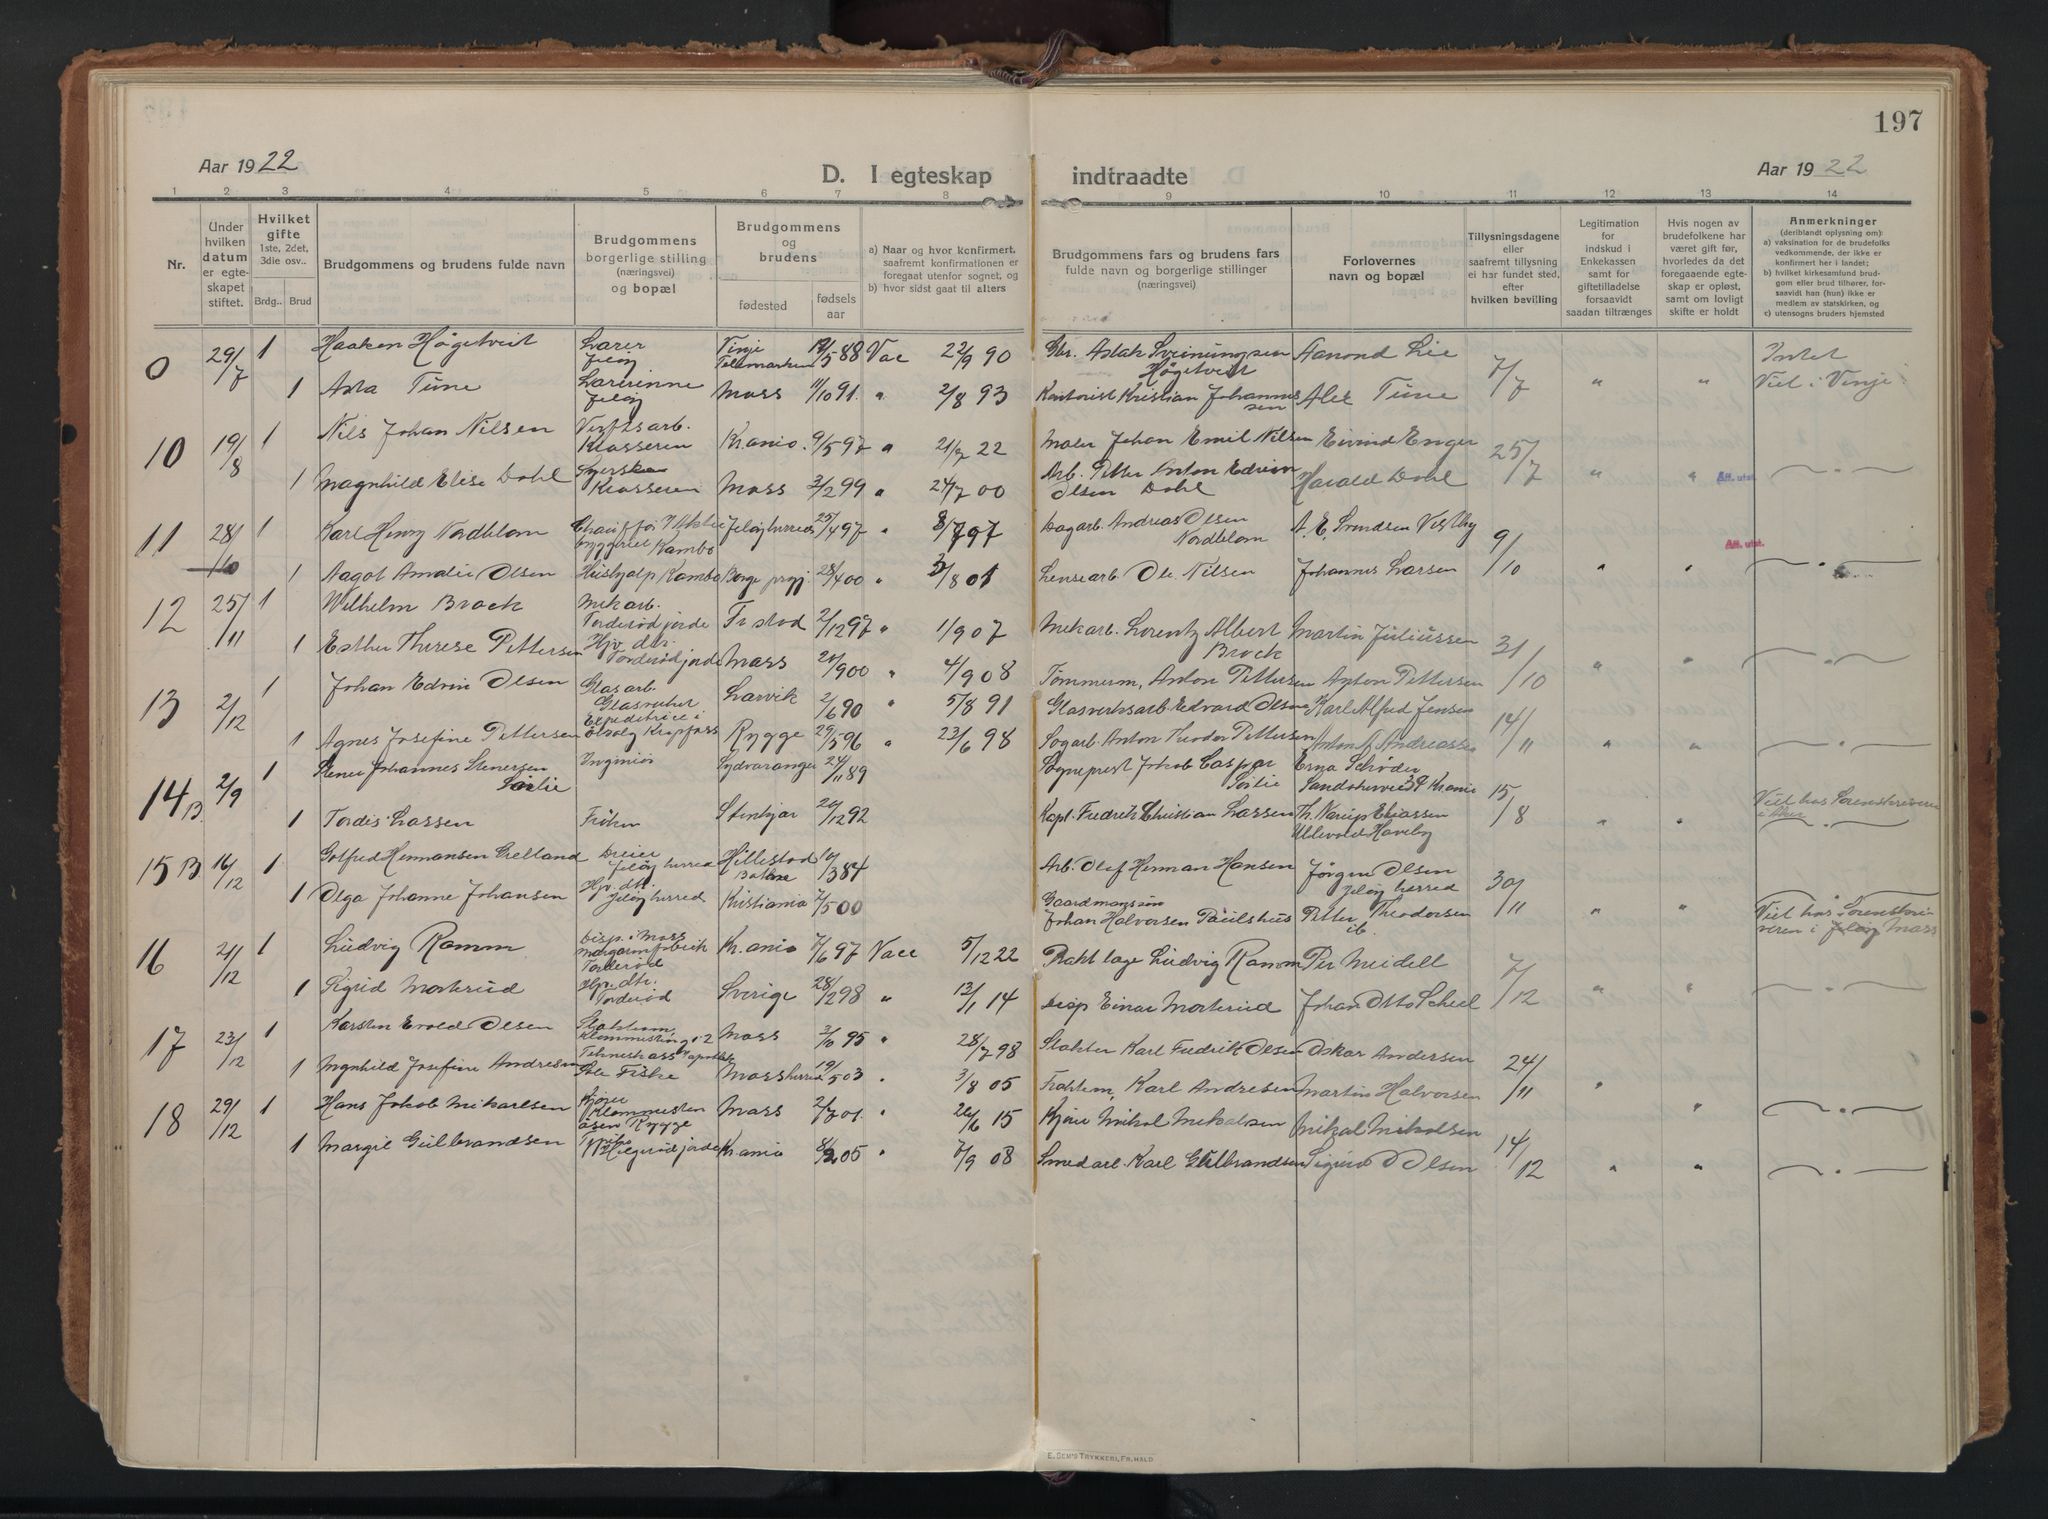 197
Aar 1922
Aar 1922
D. I egteskap indtraadte
1 2 3 4 5 6 7 8 9 10 11 12 13 14
Nr.
Under hvilken datum er egteskapet stiftet.
Hvilket gifte 1ste, 2det, 3die osv..
Brdg.. Brud
Brudgommens og brudens fulde navn
Brudgommens borgerlige stilling (næringsvei) og bopæl
Brudgommens og brudens
fødested
fødsels aar
a) Naar og hvor konfirmert, saafremt konfirmationen er foregaat utenfor sognet, og
b) hvor sidst gaat til alters
Brudgommens fars og brudens fars fulde navn og borgerlige stillinger (næringsvei)
Forlovernes navn og bopæl
Tillysningsdagene eller saafremt tillysning ei har fundet sted, efter hvilken bevilling
Legitimation for indskud i Enkekassen samt for giftetilladelse forsaavidt saadan tiltrænges
Hvis nogen av brudefolkene har været gift før, hvorledes da det foregaaende egteskap er opløst, samt om lovligt skifte er holdt
Anmerkninger (deriblandt oplysning om):
a) vaksination for de brudefolks vedkommende, der ikke er konfirmert her i landet;
b) hvilket kirkesamfund brudgom eller brud tilhører, forsaavidt han (hun) ikke er medlem av statskirken, og
c) utensogns bruders hjemsted
29/7 1 Haaken Høgetveit Lærer Jeløy Telemarken 88 Vac 22/9 90 Gbr. Aslak Sveinungsen Høgetveit Aanond Lie 7/7 Intet
1 Asta Tune Lærerinne Jeløy Moss 11/10 91 " 2/8 93 Kontorist Kristian Johannessen Alex Tune " " Viet i Vinje
10 19/8 1 Nils Johan Nilsen Verftsarb. Krosseren Kr.ania 9/5 97 " 21/7 22 Maler Johan Emil Nilsen Eivind Enger 25/7
1 Magnhild Elise Dahl Syerske Krosseren Moss 3/2 99 " 24/7 00 Arb. Petter Anton Edvin Olsen Dahl Harald Dahl " " Aff. utst.
11 28/10 1 Karl Henry Nordblom Kambo Jeløy herred 25/4 97 " 8/7 97 Andreas Olsen Nordblom A. E. Svendsen Vestby 9/10
1 Aagot Amalie Olsen Hushjelp Kambo Borge prgj. 28/4 00 " 01 Lensearb Ole Nilsen Johannes Larsen " " Aff. utst.
12 25/11 1 Wilhelm Brock Mek arb. Torderødjorde Fr.stad 2/12 97 " 1/9 07 Mek arb. Lorentz Albert Brock Martin Juliussen 31/10
1 Esther Therese Pettersen Hjv. dtr. Torderødjorde Moss 00 " 4/9 08 Tømmerm, Anton Pettersen Anton Pettersen " "
13 2/12 1 Johan Edvin Olsen Glasarb. Larvik 2/6 90 " 5/8 91 Glasverksarb. Edvard Olsen Karl Alfred Jensen 14/11
1 Agnes Josefine Pettersen Rygge 29/5 96 " 23/6 98 Sagarb. Anton Theodor Pettersen " "
14 B 2/9 1 Stener Johannes Stenersen Sørlie Ingeniør Sydvaranger 24/11 89 Sogneprest Jakob Caspar Sørlie Erna Schrøder Kr.ania 15/8
1 Tordis Lassen Frøken Stenkjær 20/12 92 Kapt. Fredrik Christian Lassen Th. Narup Eliassen Ullevold Haveby " " Viet hos Sorenskriveren i Aker
15 B 16/12 1 Gotfred Hermansen Grelland Dreier Jeløy herred Hillestad 10/3 84 Arb. Olaf Herman Hansen Jørgen Olsen Jeløy herred 30/11
1 Olga Johanne Johansen Hjv. dtr. Jeløy herred Kristiania 7/5 00 Gaardmandssøn Johan Halvorsen Paulshus Petter Theodorsen ib. " " Viet hos Sorenskriveren i Jeløy Moss
16 21/12 1 Ludvig Ramm Disp. i Moss Margarinfabrik Torderød Kr.ania 7/6 97 Vacc 5/12 22 Prakt læge Ludvig Ramm Per Meidell 7/12
1 Sigrid Morterud Hjv. dtr. Torderød Sverige 28/2 98 " 13/1 14 Disp Einar Morterud Johan Otto Scheel " "
17 23/12 1 Karsten Evald Olsen Moss 95 " 28/7 98 Slakter Karl Fredrik Olsen Oskar Andersen 24/11
1 Ingnhild Josefine Andresen Moss herred 19/5 03 " 3/8 05 Karl Andresen Martin Halvorsen "
18 29/12 1 Hans Jakob Mikarlsen Kjører Klommesten Rygge Moss 01 " 26/6 15 Kjører Mikal Mikalsen Mikal Mikalsen 14/12
1 Margit Gulbrandsen Helgerødjorde Kr.ania 05 " 7/9 08 Smedarb. Karl Gulbrandsen Sigurd Olsen " "
E. SEM'S TRYKKERI, FR.HALD